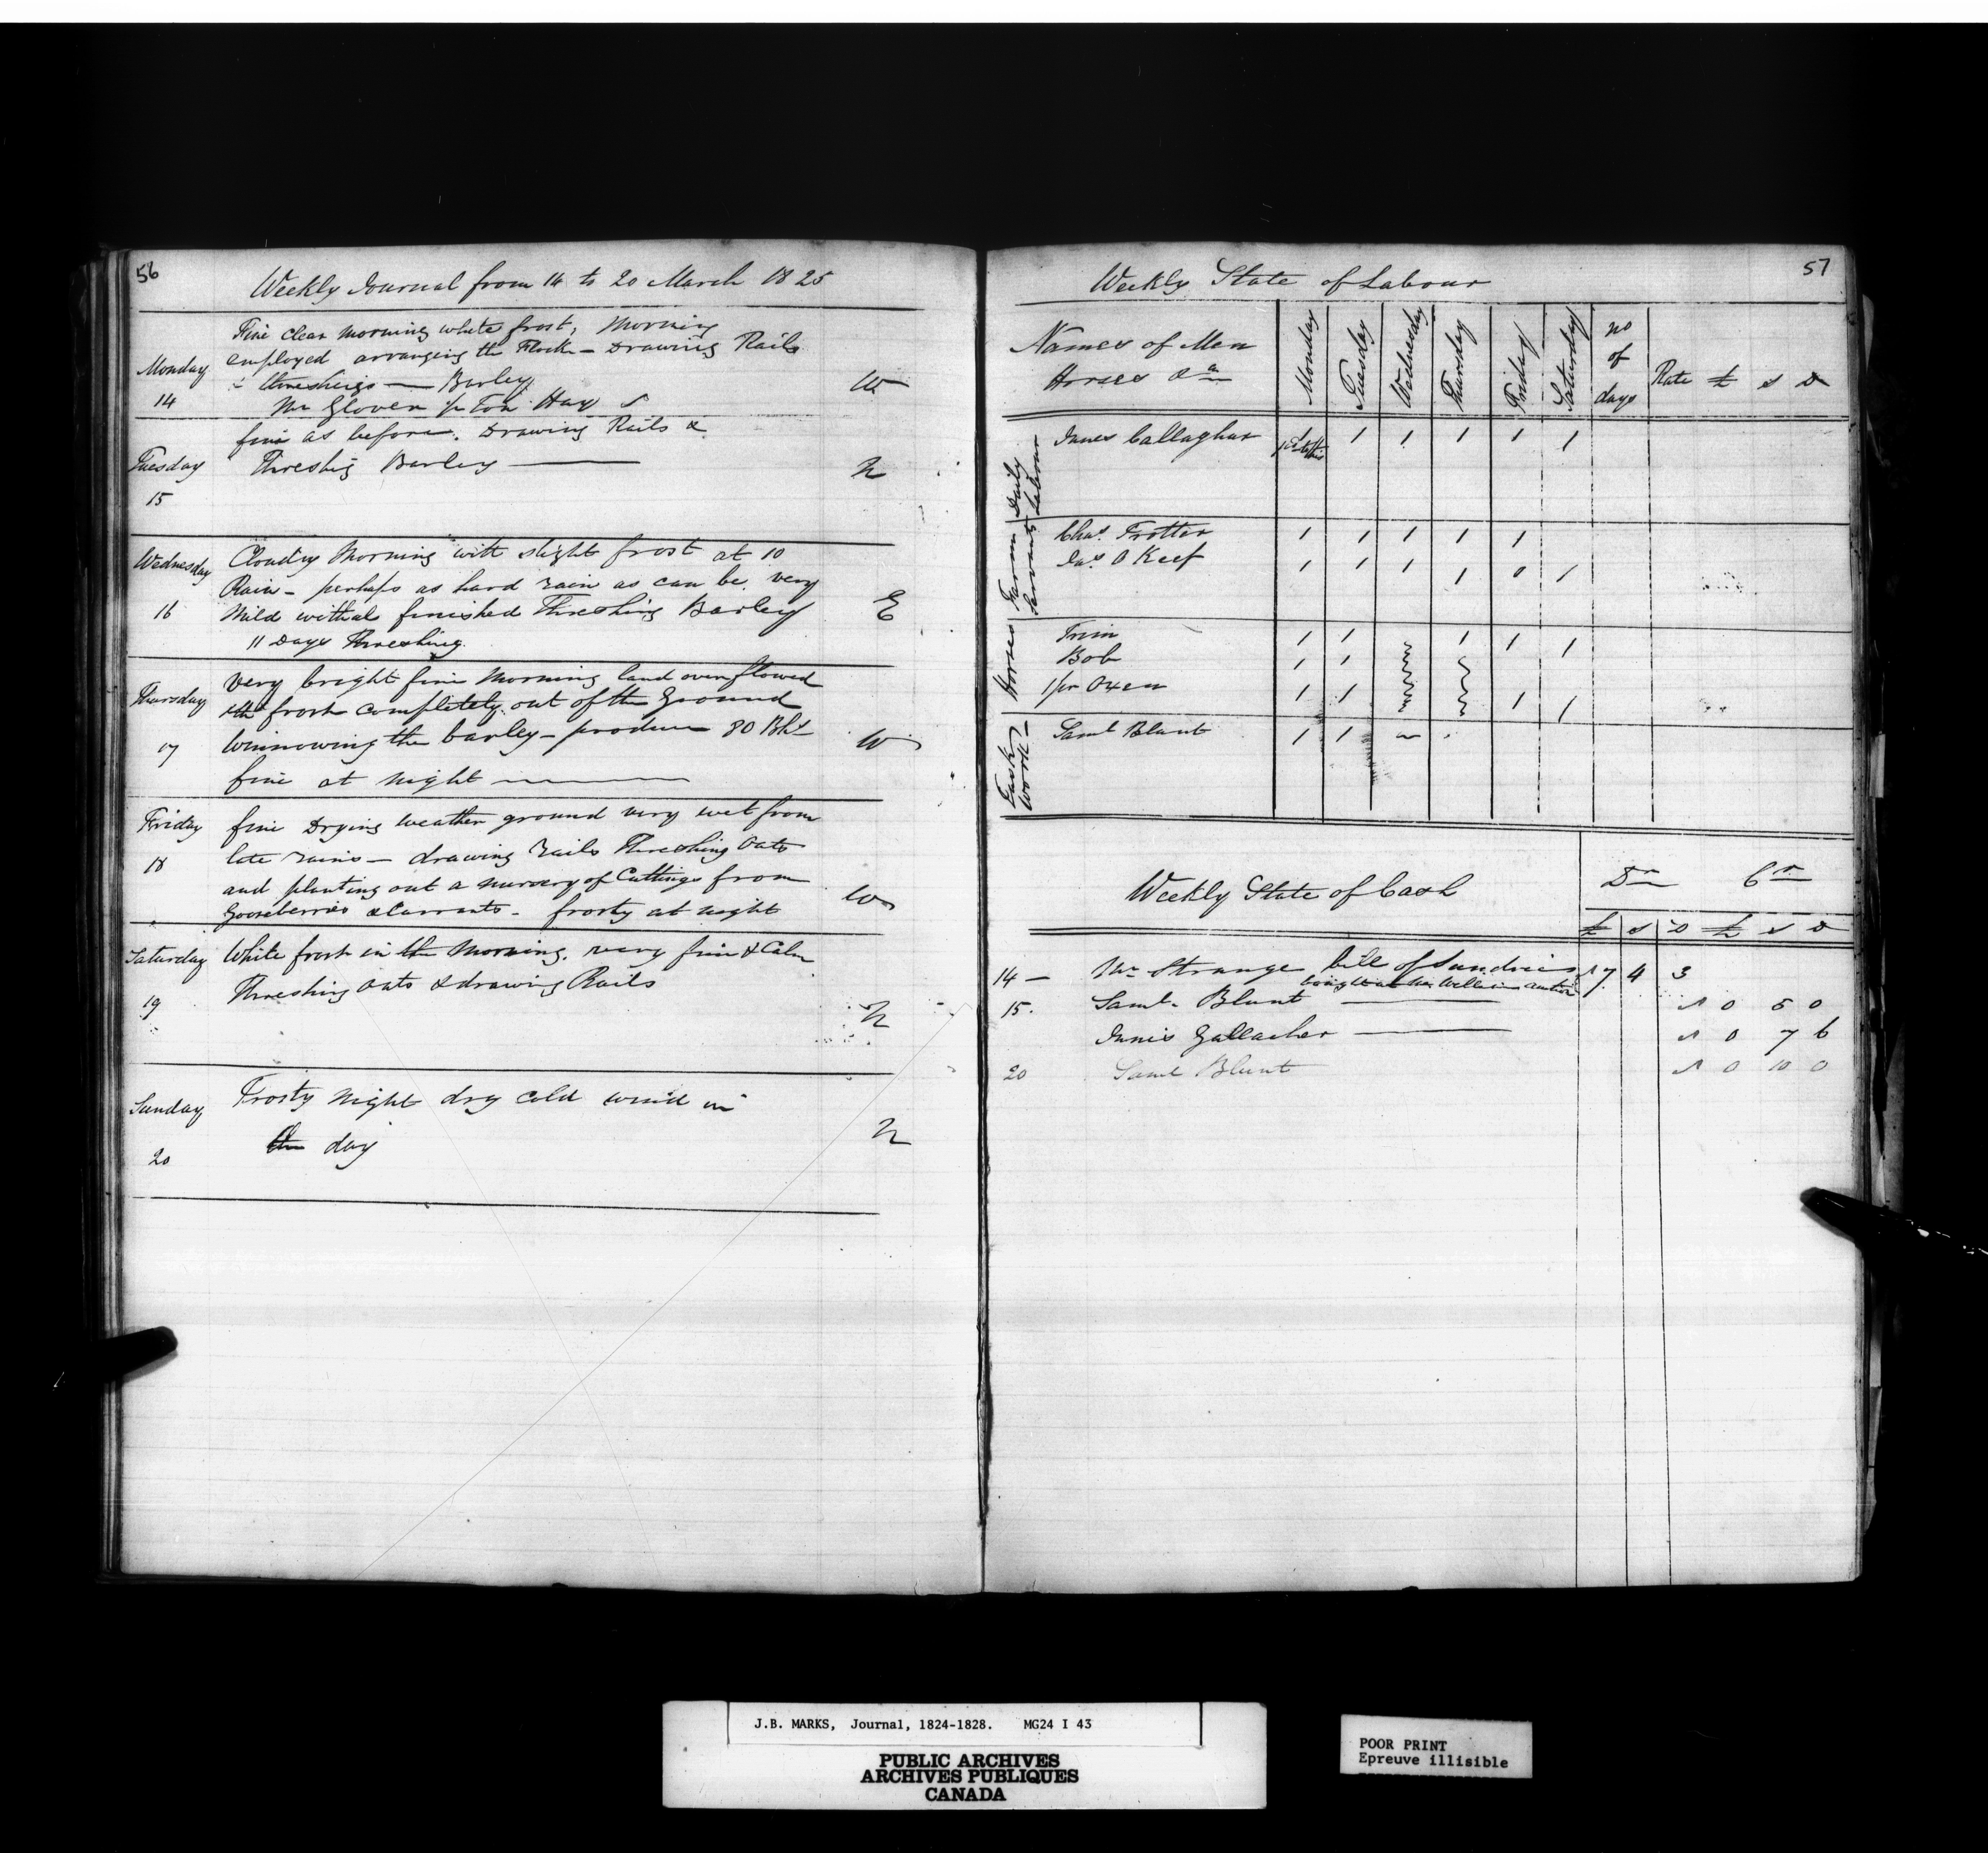 56
Weekly Journal from 14 to 20 March 1825
Monday
14
Fine clear morning white frost, Morning
employed arranging the Flock - Drawing Rails
& threshings — Barley
Mr Glover 1/2 Ton Hay
W
Tuesday
15
fine as before. Drawing Rails &
Threshig Barley —
N
Wednesday
16
Cloudy Morning with slight frost at 10
Rain - perhaps as hard rain as can be. very
Mild withal finished Threshing Barley
11 Days Threshing.
E
Thursday
17
Very bright fine Morning land overflowed
frost completely out of the Ground
Winnowing the barley - produce 80 Bhs
fine at night —
W
Friday
18
fine Drying weather ground very wet from
late rains — drawing rails Threshing Oats
and planting out a nursery of Cuttings from
Gooseberries & Currants - frosty at night
W
Saturday
19
White frost in the Morning. very fine & Calm
Threshing Oats & drawing Rails
N
Sunday
20
Frosty night dry cold wind in
the day
N
57
Weekly State of Labour
Names of Men
Horses &a
Monday
Tuesday
Wednesday
Thursday
Friday
Saturday
no
of
days
Rate £ s D
Daily
Labour
Innes Callaghar 1 1 1 1 1
Farm
Servants
Chas. Trotter 1 1 1 1 1
Jas. O Keef 1 1 1 1 0 1
Horses
Trim 1 1 1 1 1
Bob 1 1
1 pr Oxen 1 1 1 1
Task
Work
Saml Blunt 1 1
Weekly State of Cash
Dr Cr
£ s D £ s D
14 — Mr Strange bill of Sundries 17 4 3
bought at Mr auction
15. Saml. Blunt — 0 5 0
Innis Gallacher — 0 7 6
20 Saml Blunt 0 10 0
J.B. MARKS, Journal, 1824-1828. MG24 I 43
PUBLIC ARCHIVES
ARCHIVES PUBLIQUES
CANADA
POOR PRINT
Epreuve illisible